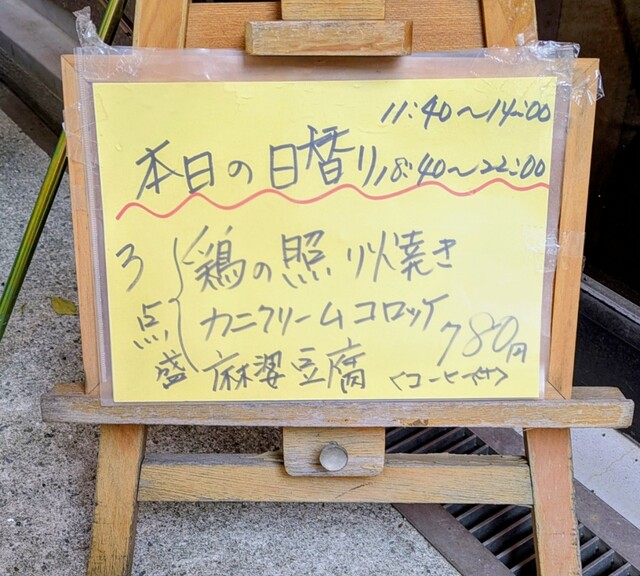 11:40〜14:00
本日の日替り 18:40〜22:00
3点盛
鶏の照り焼き
カニクリームコロッケ
麻婆豆腐
780円